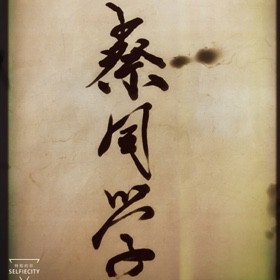 蔡同学
SELFIECITY